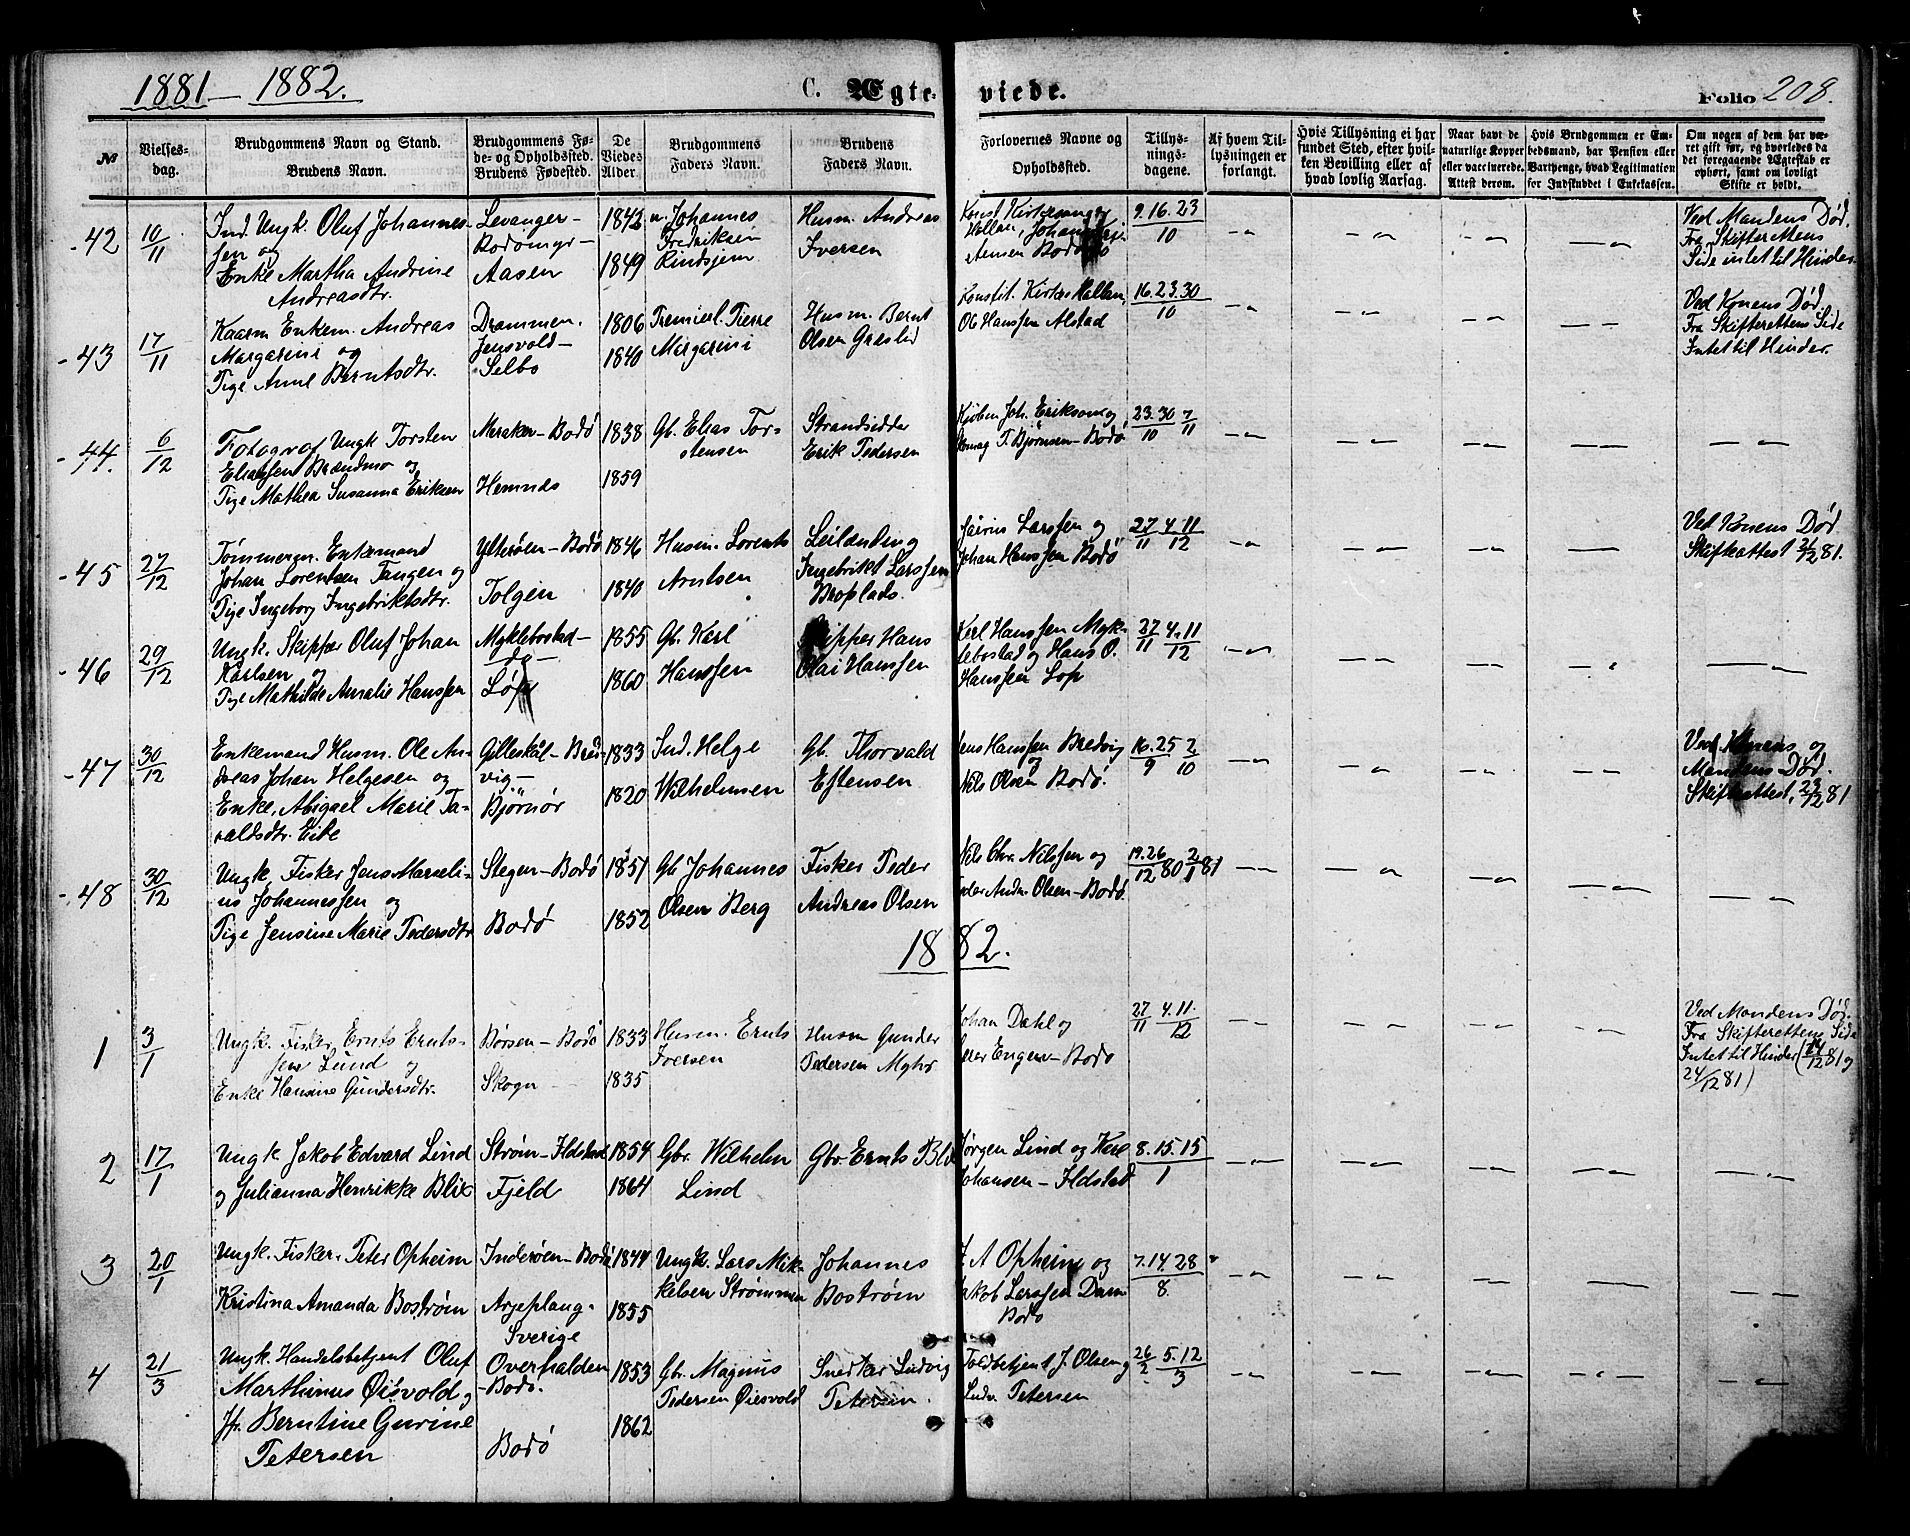 1881 - 1882.
C. Ægteviede.
Folio 208.
№
Vielsesdag.
Brudgommens Navn og Stand.
Brudens Navn.
Brudgommens Føde- og Opholdssted.
Brudens Fødested.
De Viedes Alder.
Brudgommens Faders Navn.
Brudens Faders Navn.
Forlovernes Navne og Opholdssted.
Tillysningsdagene.
Af hvem Tillysningen er forlangt.
Hvis Tillysning ei har fundet Sted, efter hvilken Bevilling eller af hvad lovlig Aarsag.
Naar havt de naturlige Kopper eller vaccinerede. Attest derom.
Hvis Brudgommen er Embedsmand, har Pension eller Vartpenge, hvad Legitimation for Indskuddet i Enkekassen.
Om nogen af dem har været gift før, og hvorledes da det foregaaende Ægteskab er ophørt, samt om lovligt Skifte er holdt.
42 10/11
Ind. Ungk. Oluf Johannessen og
Enke Martha Andrine
Andreasdtr.
Levanger-
Bodömyr-
Aasen
1842
1849
Johannes
Fredriksen
Rindsjem
Husm. Andreas
Iversen
Konst. Kirkesanger
Hallan, Johan
Bodö
9. 16. 23
10
Ved Mandens Død.
Fra Skifterettens
Side intet til Hinder.
43 17/11
Kaarm Enkem. Andreas
Margarini og
Pige Anne Berntsdtr.
Drammen.
Jensvold-
Selbo
1806
1840
Premierl. Pierre
Margarini
Husm. Bernt
Olsen Greslid
Konstit. Kirkes Hallan,
Ob Hanssen Alstad
16. 23. 30
10
Ved Konens Død.
Fra Skifterettens Side
Intet til Hinder.
44. 6/12
Fotograf Ungk Torsten
Eliassen Brændmo og
Pige Mathea Susanna Eriksen
Meraker-Bodö
Hemnæs
1838
1859
Gb. Elias Torstensen
Strandsidder
Erik Pedersen
Kjøbm Joh. Eriksen og
P. Bjørnsen-Bodö
23. 30 7
10 11
45 27/12
Tømmerm. Enkemand
Johan Lorentsen Tangen og
Pige Ingeborg Ingebriktsdtr.
Ytterøen-Bodö
Tolgen
1846
1840
Husm. Lorents
Arntsen
Leilænding
Ingebrikt Larssen
Broplads.
Jairus Larssen og
Johan Hanssen Bodö
27 4. 11
11 12
Ved Konens Død
Skifteattest 21/12 81.
46 29/12
Ungk. Skipper Oluf Johan
Karlsen og
Pige Mathilde Amalie Hanssen
Myklebostad-
do-
Løp
1855
1860
Gb. Karl
Hanssen
Skipper Hans
Olai Hanssen
Karl Hanssen Myklebostad og Hans O.
Hanssen Løp
27 4. 11
11 12
47 30/12
Enkemand Husm. Ole Andreas Johan Helgesen og
Enke, Abigael Marie Tavaldsdtr. Eide
Gilleskål-Bredvig-
Bjørnör
1833
1820
Ind. Helge
Wilhelmsen
Gb. Thorvald
Estensen
Jens Hanssen Bredvig
og
Nils Olsen Bodö.
16. 25 2
9 10
Ved Konens og
Mandens Død.
Skifteattest, 29/12 81
48 30/12
Ungk. Fisker Jens Marselius Johannessen og
Pige Jensine Marie Pedersdtr
Stegen-Bodö
Bodö
1851
1852
Gb Johannes
Olsen Berg
Fisker Peder
Andreas Olsen
Nils Chr. Nilssen og
Peder Andr. Olsen-Bodö.
19. 26 2
12 80 1 81
1882.
1 3/1
Ungk. Fisker, Ernts Erntssen Lund og
Enke Hansine Gundersdtr.
Børsen-Bodö
Skogn
1833
1835
Husm. Ernts
Iversen
Husm Gunder
Pedersen Myhr
Johan Dahl og
Engen-Bodö
27 4. 11.
11 12
Ved Mandens Død.
Fra Skifterettens Side
Intet til Hinder (24/12 81 og
24/12 81)
2 17/1
Ungk Jakob Edvard Lind
og Julianna Henrikke Blix
Strøm-Ildstad
Fjeld
1854
1864
Gbr. Wilhelm
Lind
Gbr. Ernts Blix
Jørgen Lind og Karl
Johansen-Ildstad
8. 15. 15
1
3 20/1
Ungk. Fisker. Peter Opheim
Kristina Amanda Boström
Inderøen-Bodö
Arjeplaug-
Sverige
1844
1855
Ungk. Lars Mikkelsen Strømmen
Johannes
Boström
A Opheim og
Jakob Larssen Dam
Bodö
7. 14. 28
8
4 21/3
Ungk. Handelsbetjent Oluf
Marthinus Øisvold og
Jfr. Berntine Gurine
Petersen
Overhalden
-Bodö.
Bodö
1853
1862
Gbr. Magnus
Pedersen Øisvold
Snedker Ludvig
Petersen.
Toldbetjent J. Olsen og
Ludv. Petersen
26 5. 12
2 3